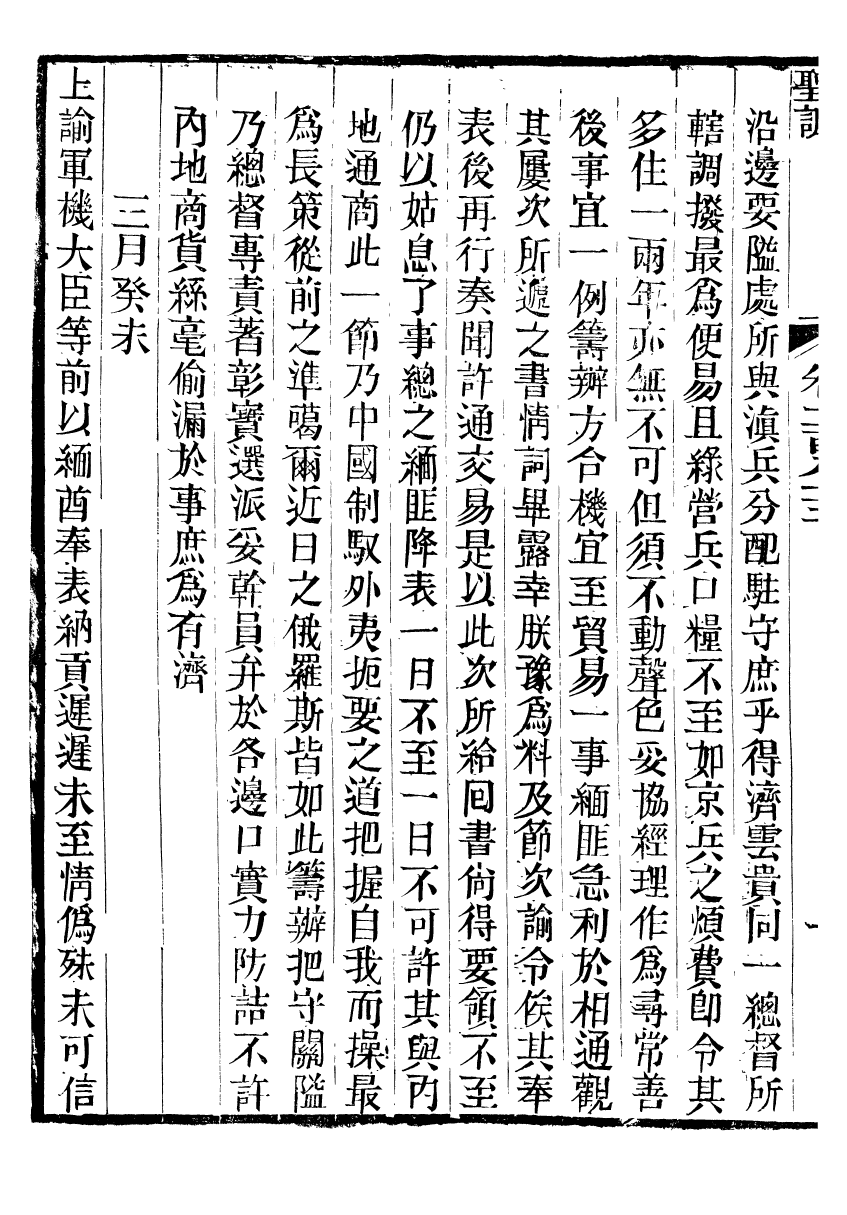 聖訓
沿邊要隘處所與滇兵分配駐守庶乎得濟雲貴同一總督所
轄調撥最爲便易且綠營兵口糧不至如京兵之煩費卽令其
多住一兩年亦無不可但須不動聲色妥協經理作爲尋常善
後事宜一例籌辦方合機宜至貿易一事緬匪急利於相通觀
其屢次所遞之書情詞畢露幸朕豫爲料及節次諭令俟其奉
表後再行奏聞許通交易是以此次所給回書尙得要領不至
仍以姑息了事總之緬匪降表一日不至一日不可許其與內
地通商此一節乃中國制馭外夷扼要之道把握自我而操最
爲長策從前之準噶爾近日之俄羅斯皆如此籌辦把守關隘
乃總督專責著彰寶選派妥幹員弁於各邊口實力防詰不許
內地商貨絲毫偷漏於事庶爲有濟
三月癸未
上諭軍機大臣等前以緬酋奉表納貢遲遲未至情僞殊未可信